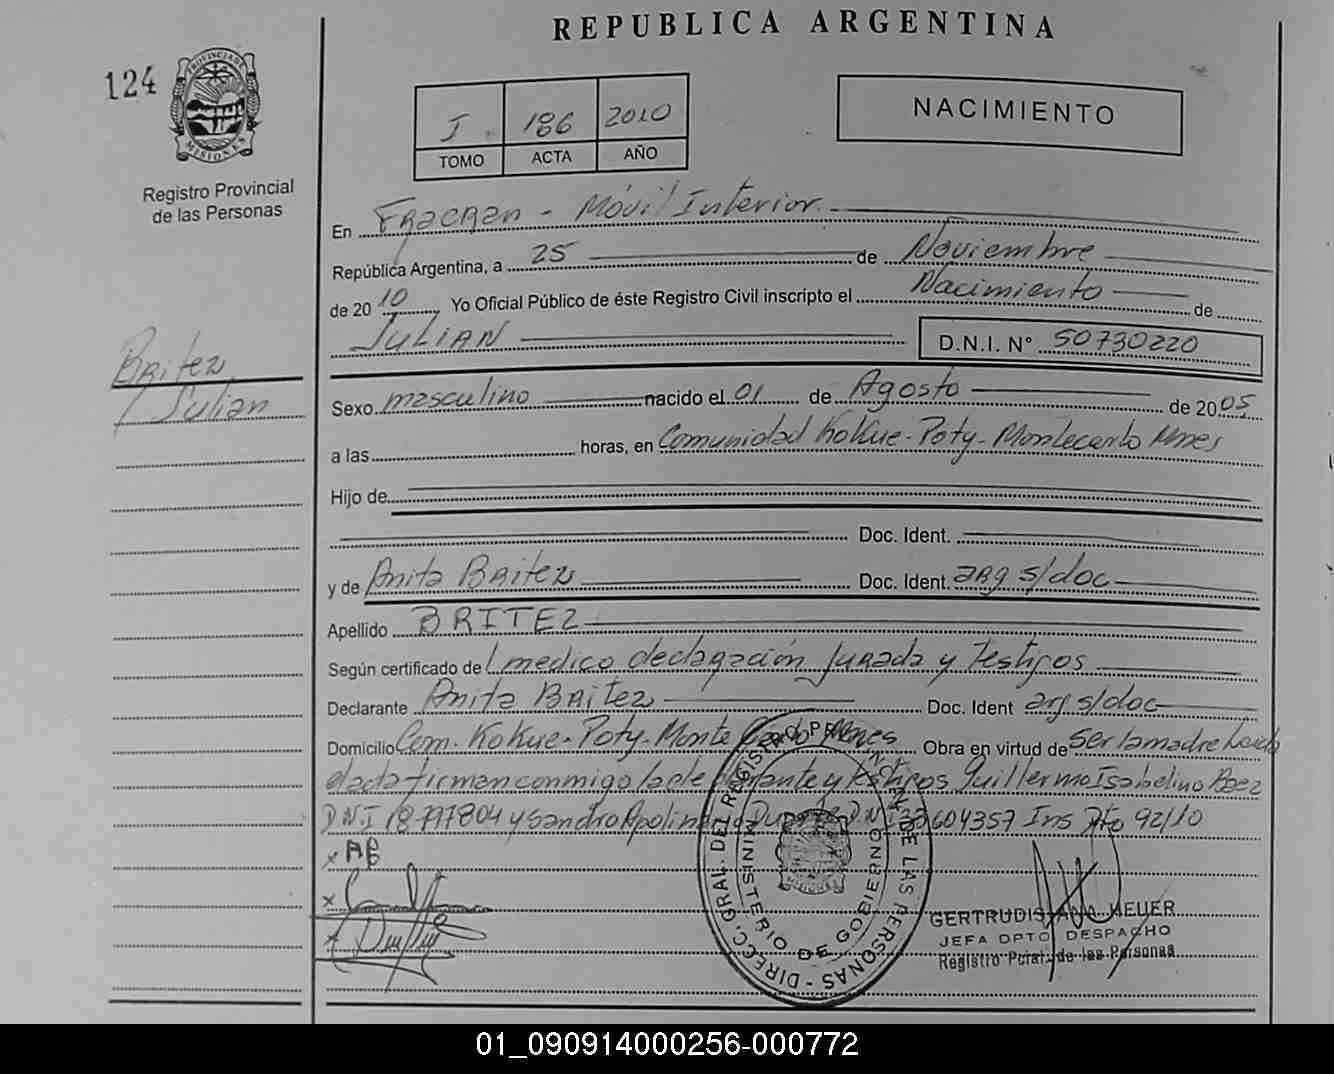 REPUBLICA ARGENTINA
124
PROVINCIA DE MISIONES
Registro Provincial
de las Personas
I 186 2010
TOMO ACTA AÑO
NACIMIENTO
En Fracran - Móvil Interior
República Argentina, a 25 de Noviembre
de 2010 Yo Oficial Público de éste Registro Civil inscripto el Nacimiento de
JULIAN D.N.I. N° 50730220
Britez
Julian
Sexo masculino nacido el 01 de Agosto de 2005
a las horas, en Comunidad Kokue-Poty-Montecarlo Mnes
Hijo de
Doc. Ident.
y de Anita Britez Doc. Ident. arg s/doc
Apellido BRITEZ
Según certificado de medico declaración Jurada y Testigos
Declarante Anita Britez Doc. Ident arg s/doc
Domicilio Com. Kokue-Poty-Monte Carlo Mnes Obra en virtud de ser la madre Leida
el acta firman conmigo la declarante y testigos Guillermo Isabelino Baez
D.N.I y Sandro Apolinario Duarte D.N.I Ins Dto 92/10
x AB
x
x
DIRECC. GRAL. DEL REGISTRO PROVINCIAL DE LAS PERSONAS
MINISTERIO DE GOBIERNO
GERTRUDIS ANA MEUER
JEFA DPTO DESPACHO
Registro Pcial. de las Personas
01_090914000256-000772